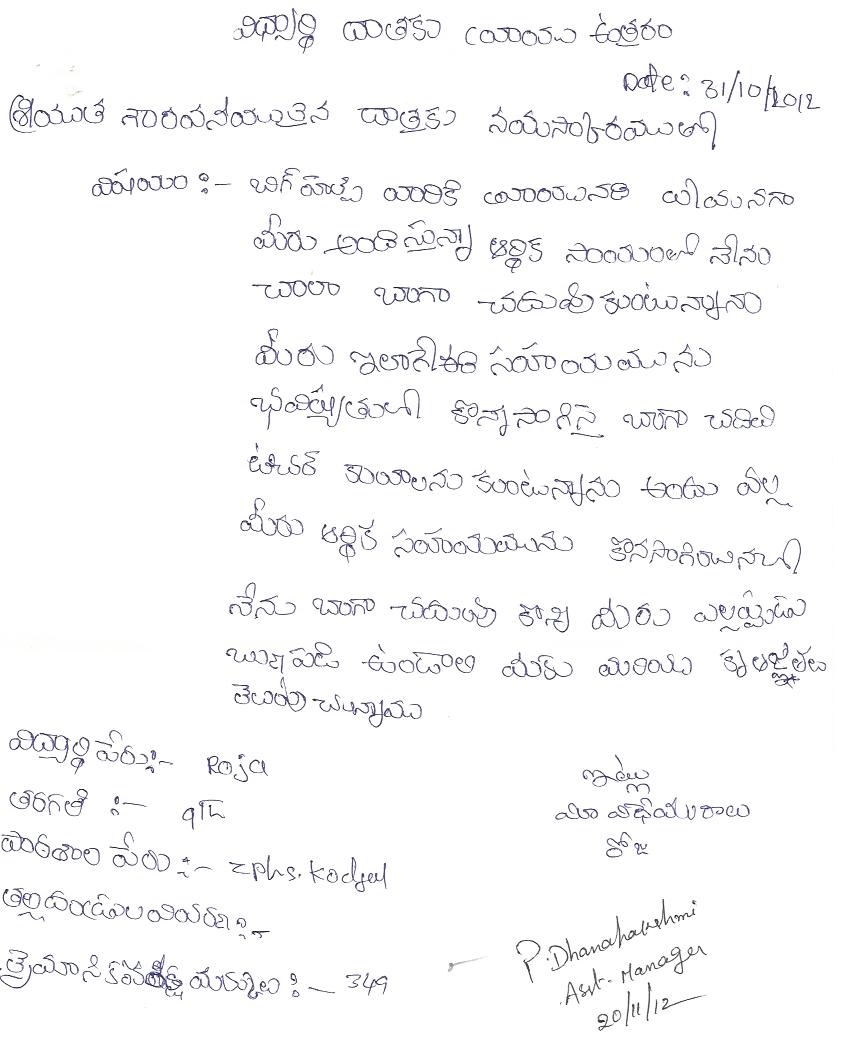 విద్యార్థి దాతకు వ్రాయు ఉత్తరం
Date: 31/10/2012
శ్రీయుత గౌరవనీయులైన దాతకు నమస్కారములతో
విషయం :- బిగ్ హెల్ప్ వారికి వ్రాయునది ఏమనగా
మీరు అందిస్తున్నా ఆర్థిక సాయంలో నేను
చాలా బాగా చదువు కుంటున్నాను
మీరు ఇలాగే ఈ సహాయమును
భవిష్యత్తులో కొన్నసాగిస్తే బాగా చదివి
టీచర్ కావాలను కుంటున్నాను అందు వల్ల
మీరు ఆర్థిక సహయమును కొనసాగించినచో
నేను బాగా చదువు కొని మీరు ఎల్లప్పుడు
ఋణపడి ఉండాలి మీకు మరియు కృతజ్ఞతలు
తెలుపు చున్నాము
విద్యార్థి పేరు:- Roja
తరగతి :- 9th
పాఠశాల పేరు :- zphs. Kodgal
తల్లిదండ్రుల :-
త్రైమాసిక పరీక్ష మార్కులు :- 349
ఇట్లు
మీ విధేయురాలు
రోజ
P. Dhanalakshmi
Asst. Manager
20/11/12